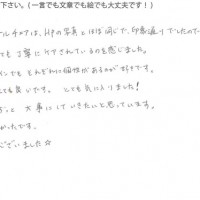 下さい。(一言でも文章でも絵でも大丈夫です！)
は、HPの写真とほぼ同じで、印象通りでしたので
ても丁寧に されているのを感じました。
でもそれぞれに個性があるのが好きです。
ても良いです。とても気に入りました！
っと大事にしていきたいと思っています。
かったです。
ございました☆